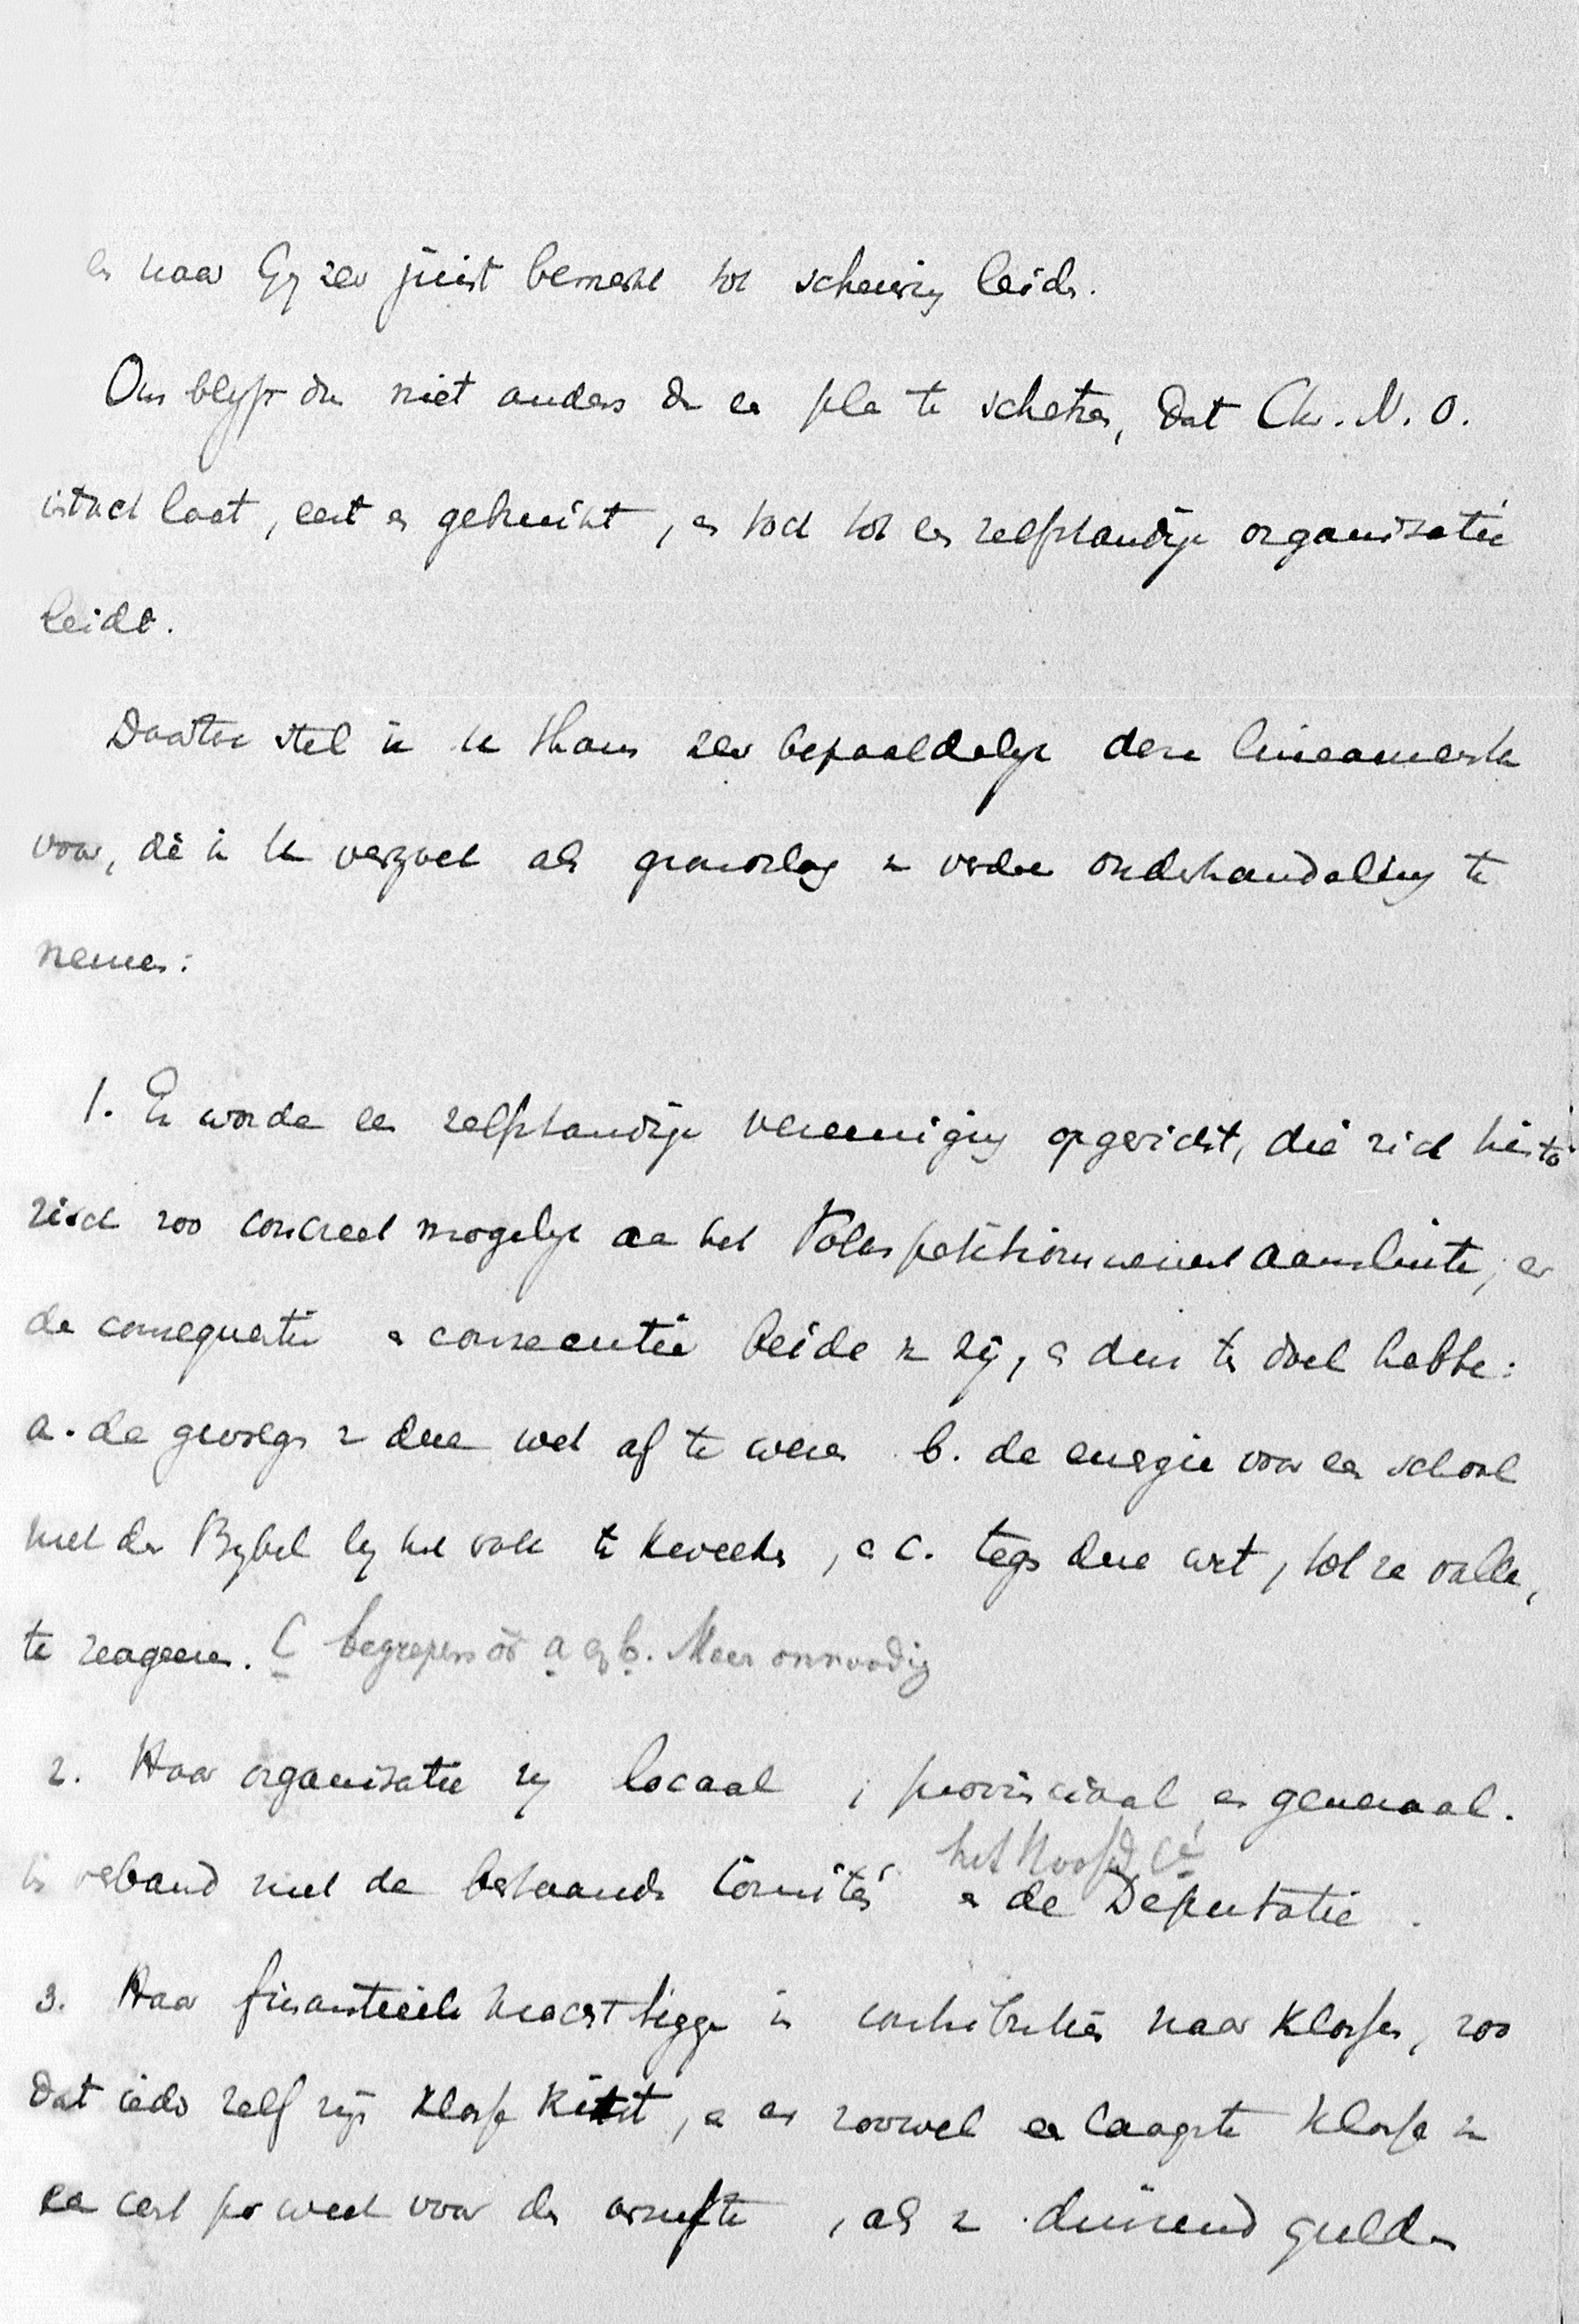 en naar Gij zeer juist bemerkt tot scheuring leidt.
Ons blijft dus niet anders dan een plan te schetsen, dat Chr. N. O.
intact laat, eert en gebruikt, en toch tot een zelfstandige organisatie
leidt.
Daartoe stel ik U thans zeer bepaaldelijk deze lineamenten
voor, die ik U verzoek als grondslag van verdere onderhandeling te
nemen:
1. Er worde een zelfstandige vereeniging opgericht, die zich histo
risch zoo concreet mogelijk aan het Volkspetitionnement aansluite, er
de consequentie en consecutie beide van zij, en dus ten doel hebbe:
a. de gevolgen van deze wet af te weren b. de energie voor een school
met den Bijbel bij het volk te kweeken, en c. tegen deze wet, tot ze valle,
te reageeren. C begrepen in a en b. Meer onnoodig
2. Haar organisatie zij locaal, provinciaal en generaal.
het Hoofd Cé
in verband met de bestaande Comités en de Deputatie.
3. Haar financieele kracht ligge in contributiën naar klassen, zoo
dat ieder zelf zijn klasse kiest, en er zoowel een laagste klasse van
een cent per week voor den armste, als van duizend gulden